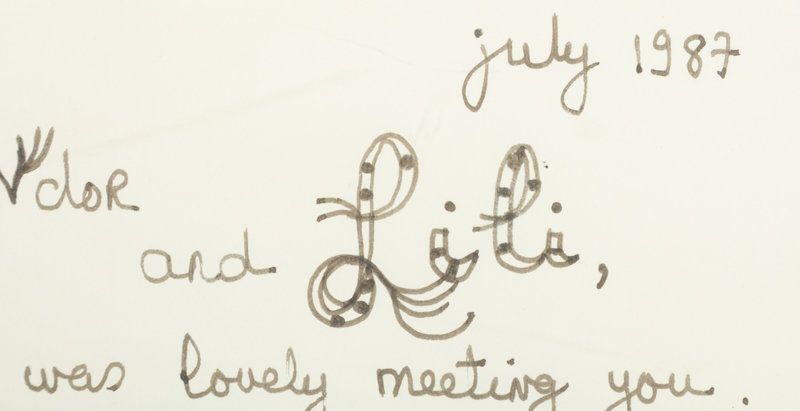 july 1987
dor
and Lili,
was lovely meeting you.